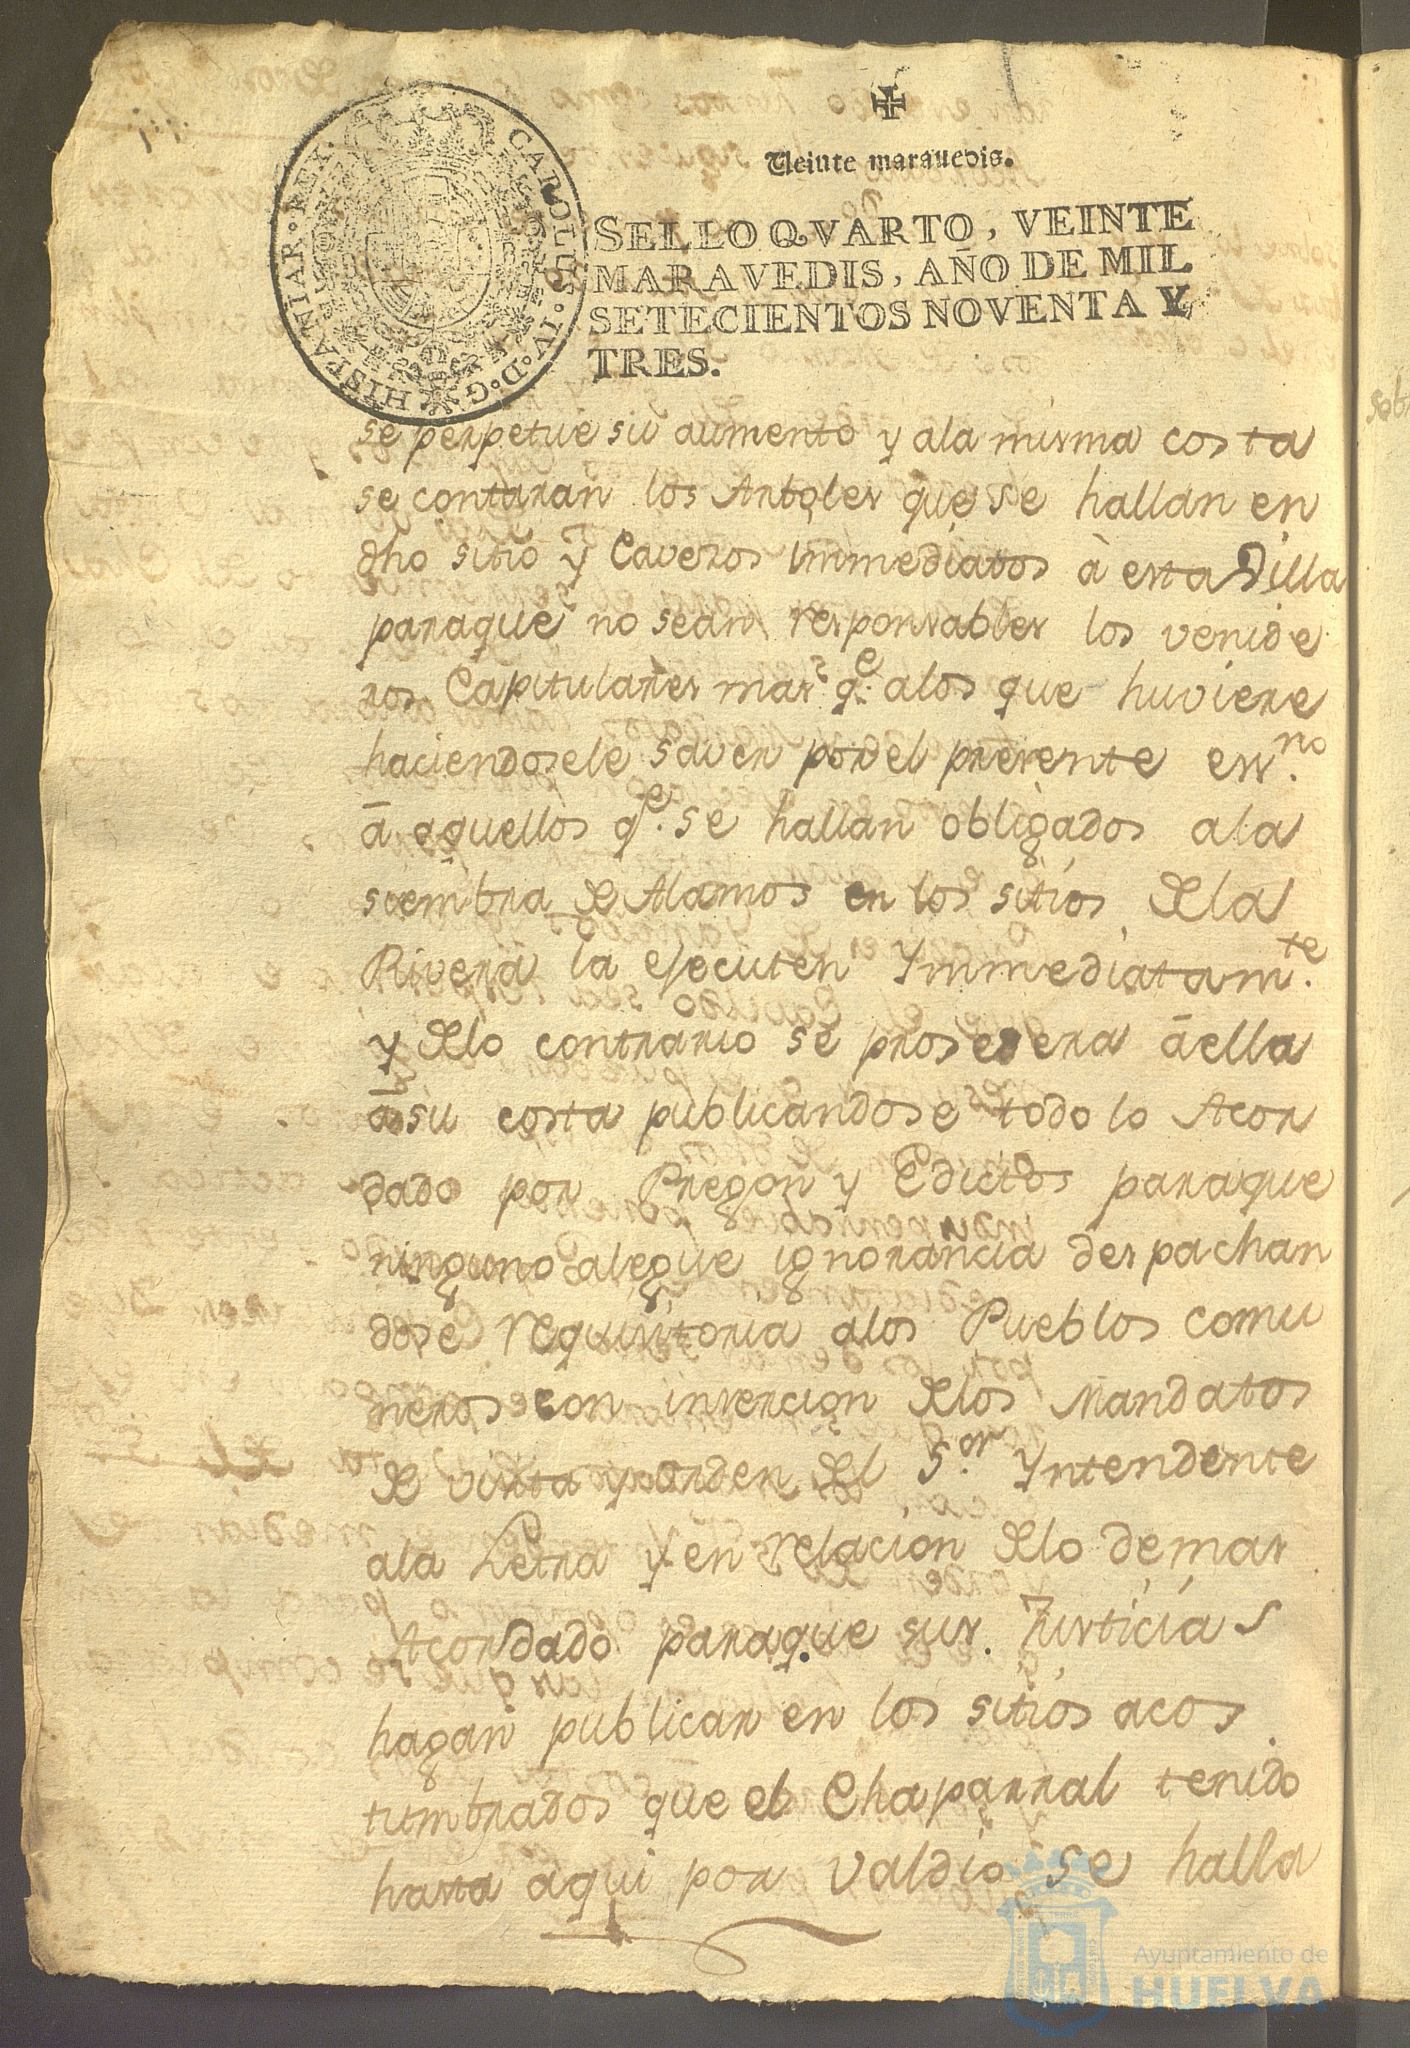 Veinte maravedis.
CAROLUS·IV·D·G·HISPANIAR·REX·
SELLO QVARTO, VEINTE
MARAVEDIS, AÑO DE MIL
SETECIENTOS NOVENTA Y
TRES.
se perpetue su aumento y ala misma costa
se contaran los Arboles que se hallan en
dho sitio y Caveros Immediatos à esta Villa
paraque no sean responsables los venide
ros Capitulares mas q.e alos que huviere
haciendosele saver por el presente ess.no
à aquellos q.e se hallan obligados ala
siembra de Alamos en los sitios dela
Rivera la ejecuten Ymmediatam.te
y delo contrario se prosedera à ella
à su costa publicandose todo lo Acor
dado por Pregon y Edictos paraque
ninguno alegue ignorancia despachan
dose requisitoria alos Pueblos comu
neros con insercion delos Mandatos
de visita y orden del S.or Yntendente
ala Letra y en relacion delo demas
Acordado paraque sus Justicias
hagan publicar en los sitios acos
tumbrados que el Chaparral tenido
hasta aqui por valdio se halla
Ayuntamiento de
HUELVA